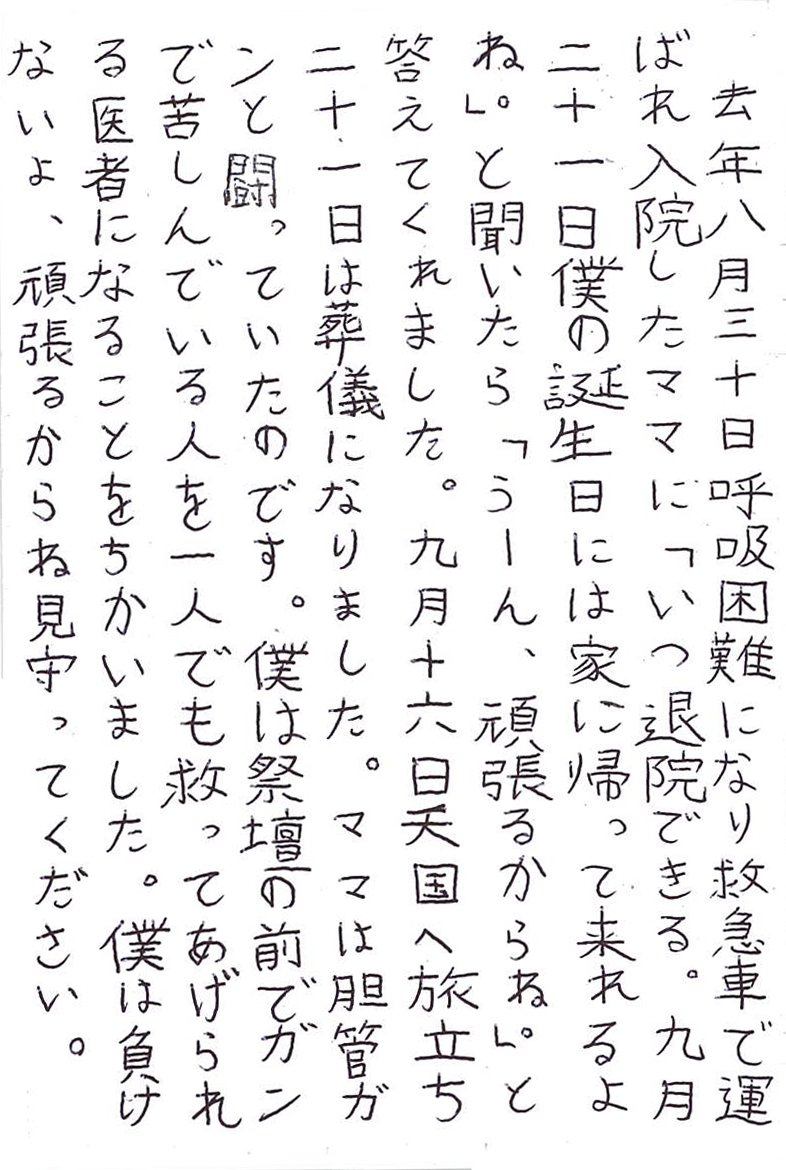 去年八月三十日呼吸困難になり救急車で運
ばれ入院したママに「いつ退院できる。九月
二十一日僕の誕生日には家に帰って来れるよ
ね。」と聞いたら「うーん、頑張るからね。」と
答えてくれました。九月十六日天国へ旅立ち
二十一日は葬儀になりました。ママは胆管ガ
ンと闘っていたのです。僕は祭壇の前でガン
で苦しんでいる人を一人でも救ってあげられ
る医者になることをちかいました。僕は負け
ないよ、頑張るからね見守ってください。